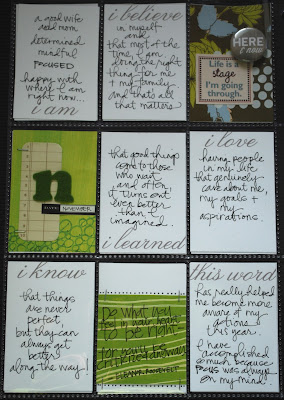 a good wife
and mom
determined
mindful
FOCUSED
happy with
where I am
right now...
i am
i believe
in myself
and
that most of the
time, I am
doing the right
thing for me
+ my family
and that's all
that matters
HERE
& now
Life is a
stage
I'm going
through.
n
NOVEMBER
that good things
come to those
who wait
and often
it turns out
even better
than I
imagined.
i learned
i love
having people
in my life
that genuinely
care about me,
my goals +
my
aspirations.
i know
that things
are never
perfect
but they can
always get
better
along the way!
Do what you
feel in your heart
to be right
for you'll be
criticized anyway
ELEANOR ROOSEVELT
this word
has really helped
me become more
aware of my
actions
this year.
I have
accomplished
so much because
focus was always
on my mind!